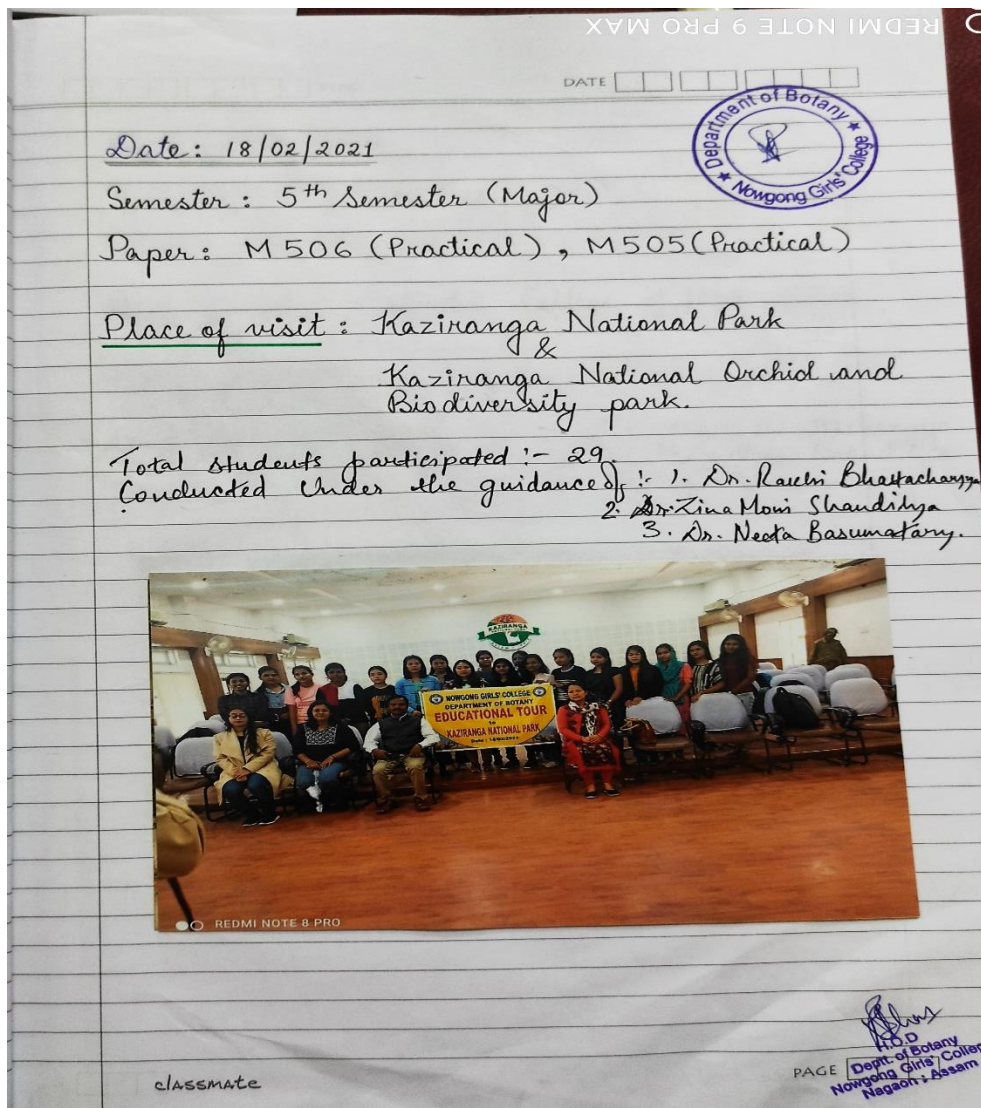 REDMI NOTE 9 PRO MAX
DATE
Department of Botany
Nowgong Girls' College
Date: 18/02/2021
Semester: 5th Semester (Major)
Paper: M 506 (Practical), M505 (Practical)
Place of visit: Kaziranga National Park
&
Kaziranga National Orchid and
Biodiversity park.
Total students participated :- 29.
Conducted Under the guidance of :- 1. Dr. Ranchi Bhattacharyya
2. Dr. Zina Moni Shandilya
3. Dr. Neeta Basumatary.
KAZIRANGA
NOWGONG GIRLS' COLLEGE
DEPARTMENT OF BOTANY
EDUCATIONAL TOUR
to
KAZIRANGA NATIONAL PARK
REDMI NOTE 8 PRO
H.O.D
Deptt. of Botany
Nowgong Girls' Colle
Nagaon : Assam
PAGE
classmate